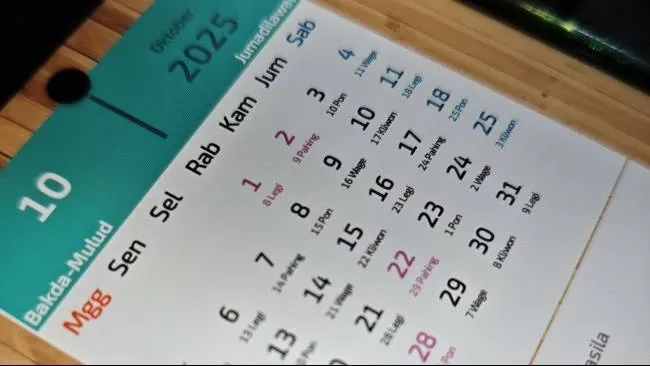 Oktober
2025
10
Bakda-Mulud
Jumadilawa
Mgg Sen Sel Rab Kam Jum Sab
1 2 3 4
8 Legi 9 Pahing 10 Pon 11 Wage
6 7 8 9 10 11
13 Legi 14 Pahing 15 Pon 16 Wage 17 Kliwon 18 Legi
13 14 15 16 17 18
Pon 21 Wage 22 Kliwon 23 Legi 24 Pahing 25 Pon
21 22 23 24 25
28 Legi 29 Pahing 1 Pon 2 Wage 3 Kliwon
28 29 30 31
Pon 7 Wage 8 Kliwon 9 Legi
asila